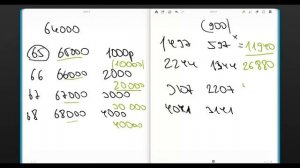 64000
65 65000 1000р
(10000)
66 66000 2000
20000
67 67000 3000
30 000
68 68000 4000
40000
(900)
1497 597 = 11940
2244 1344 = 26880
3107 2207
4041 3141